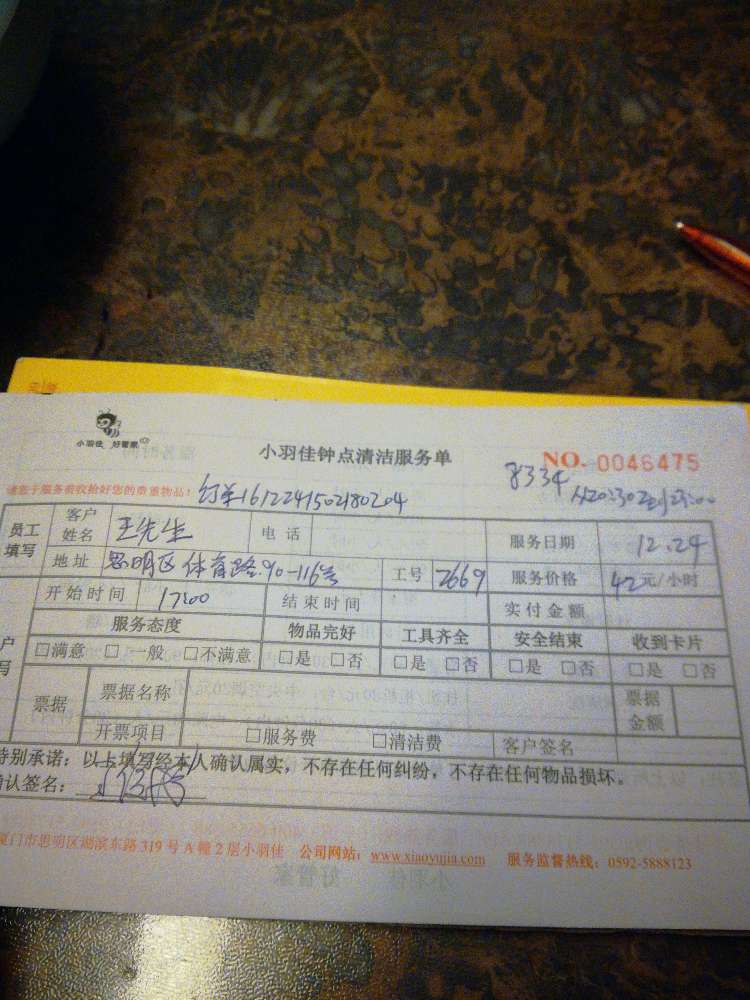 小羽佳 好管家
小羽佳钟点清洁服务单
NO. 0046475
请您于服务前收拾好您的贵重物品!
订单1612241502180204
8334
从20:30到23:00
员工填写 客户姓名 王先生 电话 服务日期 12.24
地址 思明区体育路.90-116号 工号 2669 服务价格 42元/小时
开始时间 17:00 结束时间 实付金额
服务态度 物品完好 工具齐全 安全结束 收到卡片
□满意 □一般 □不满意 □是 □否 □是 □否 □是 □否 □是 □否
票据 票据名称 票据金额
开票项目 □服务费 □清洁费 客户签名
特别承诺:以上填写经本人确认属实,不存在任何纠纷,不存在任何物品损坏。
确认签名:
厦门市思明区湖滨东路319号A幢2层小羽佳 公司网站:www.xiaoyujia.com 服务监督热线:0592-5888123